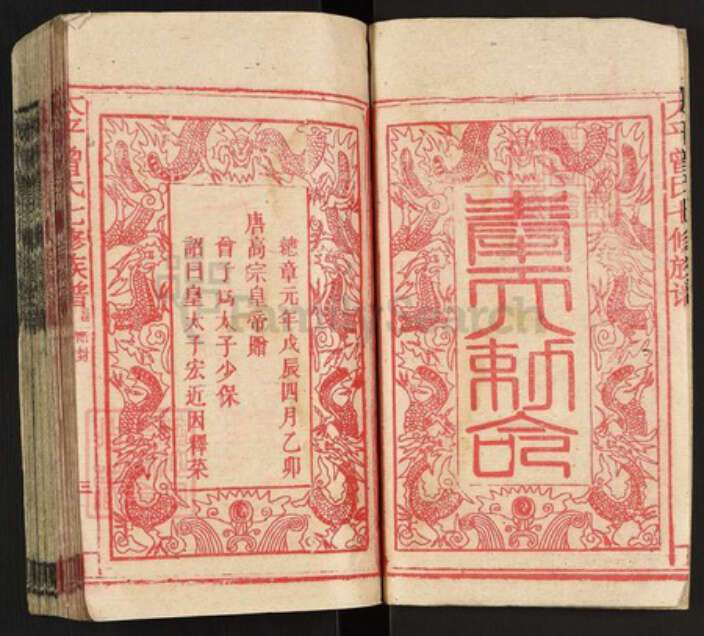 奉天敕命
總章元年戊辰四月乙卯
唐高宗皇帝贈
曾子爲太子少保
詔曰皇太子宏近因釋菜
曾氏七修族譜
三
FamilySearch